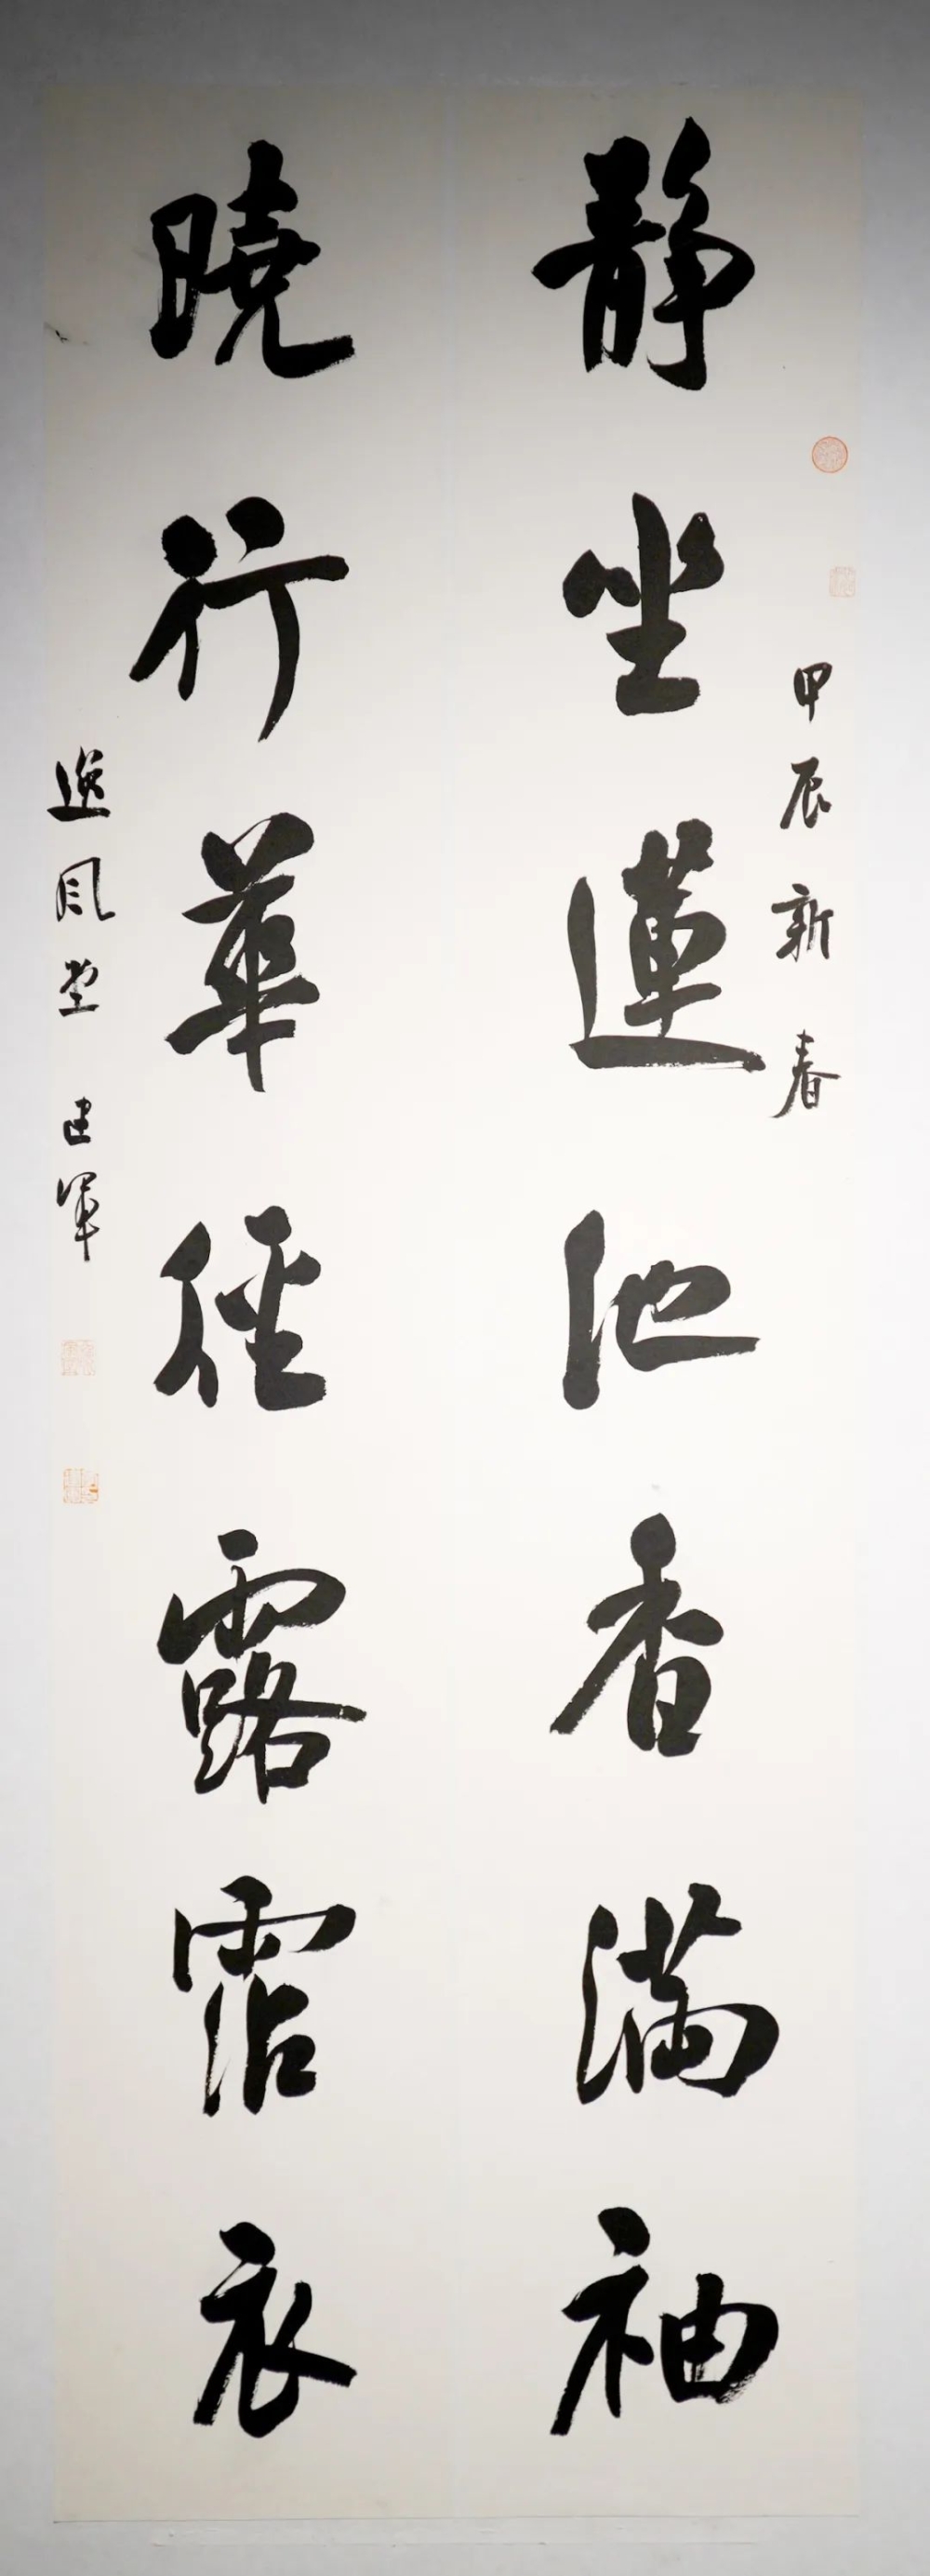 甲辰新春
静坐蓮池香滿袖
曉行華徑露霑衣
逸風堂 建軍